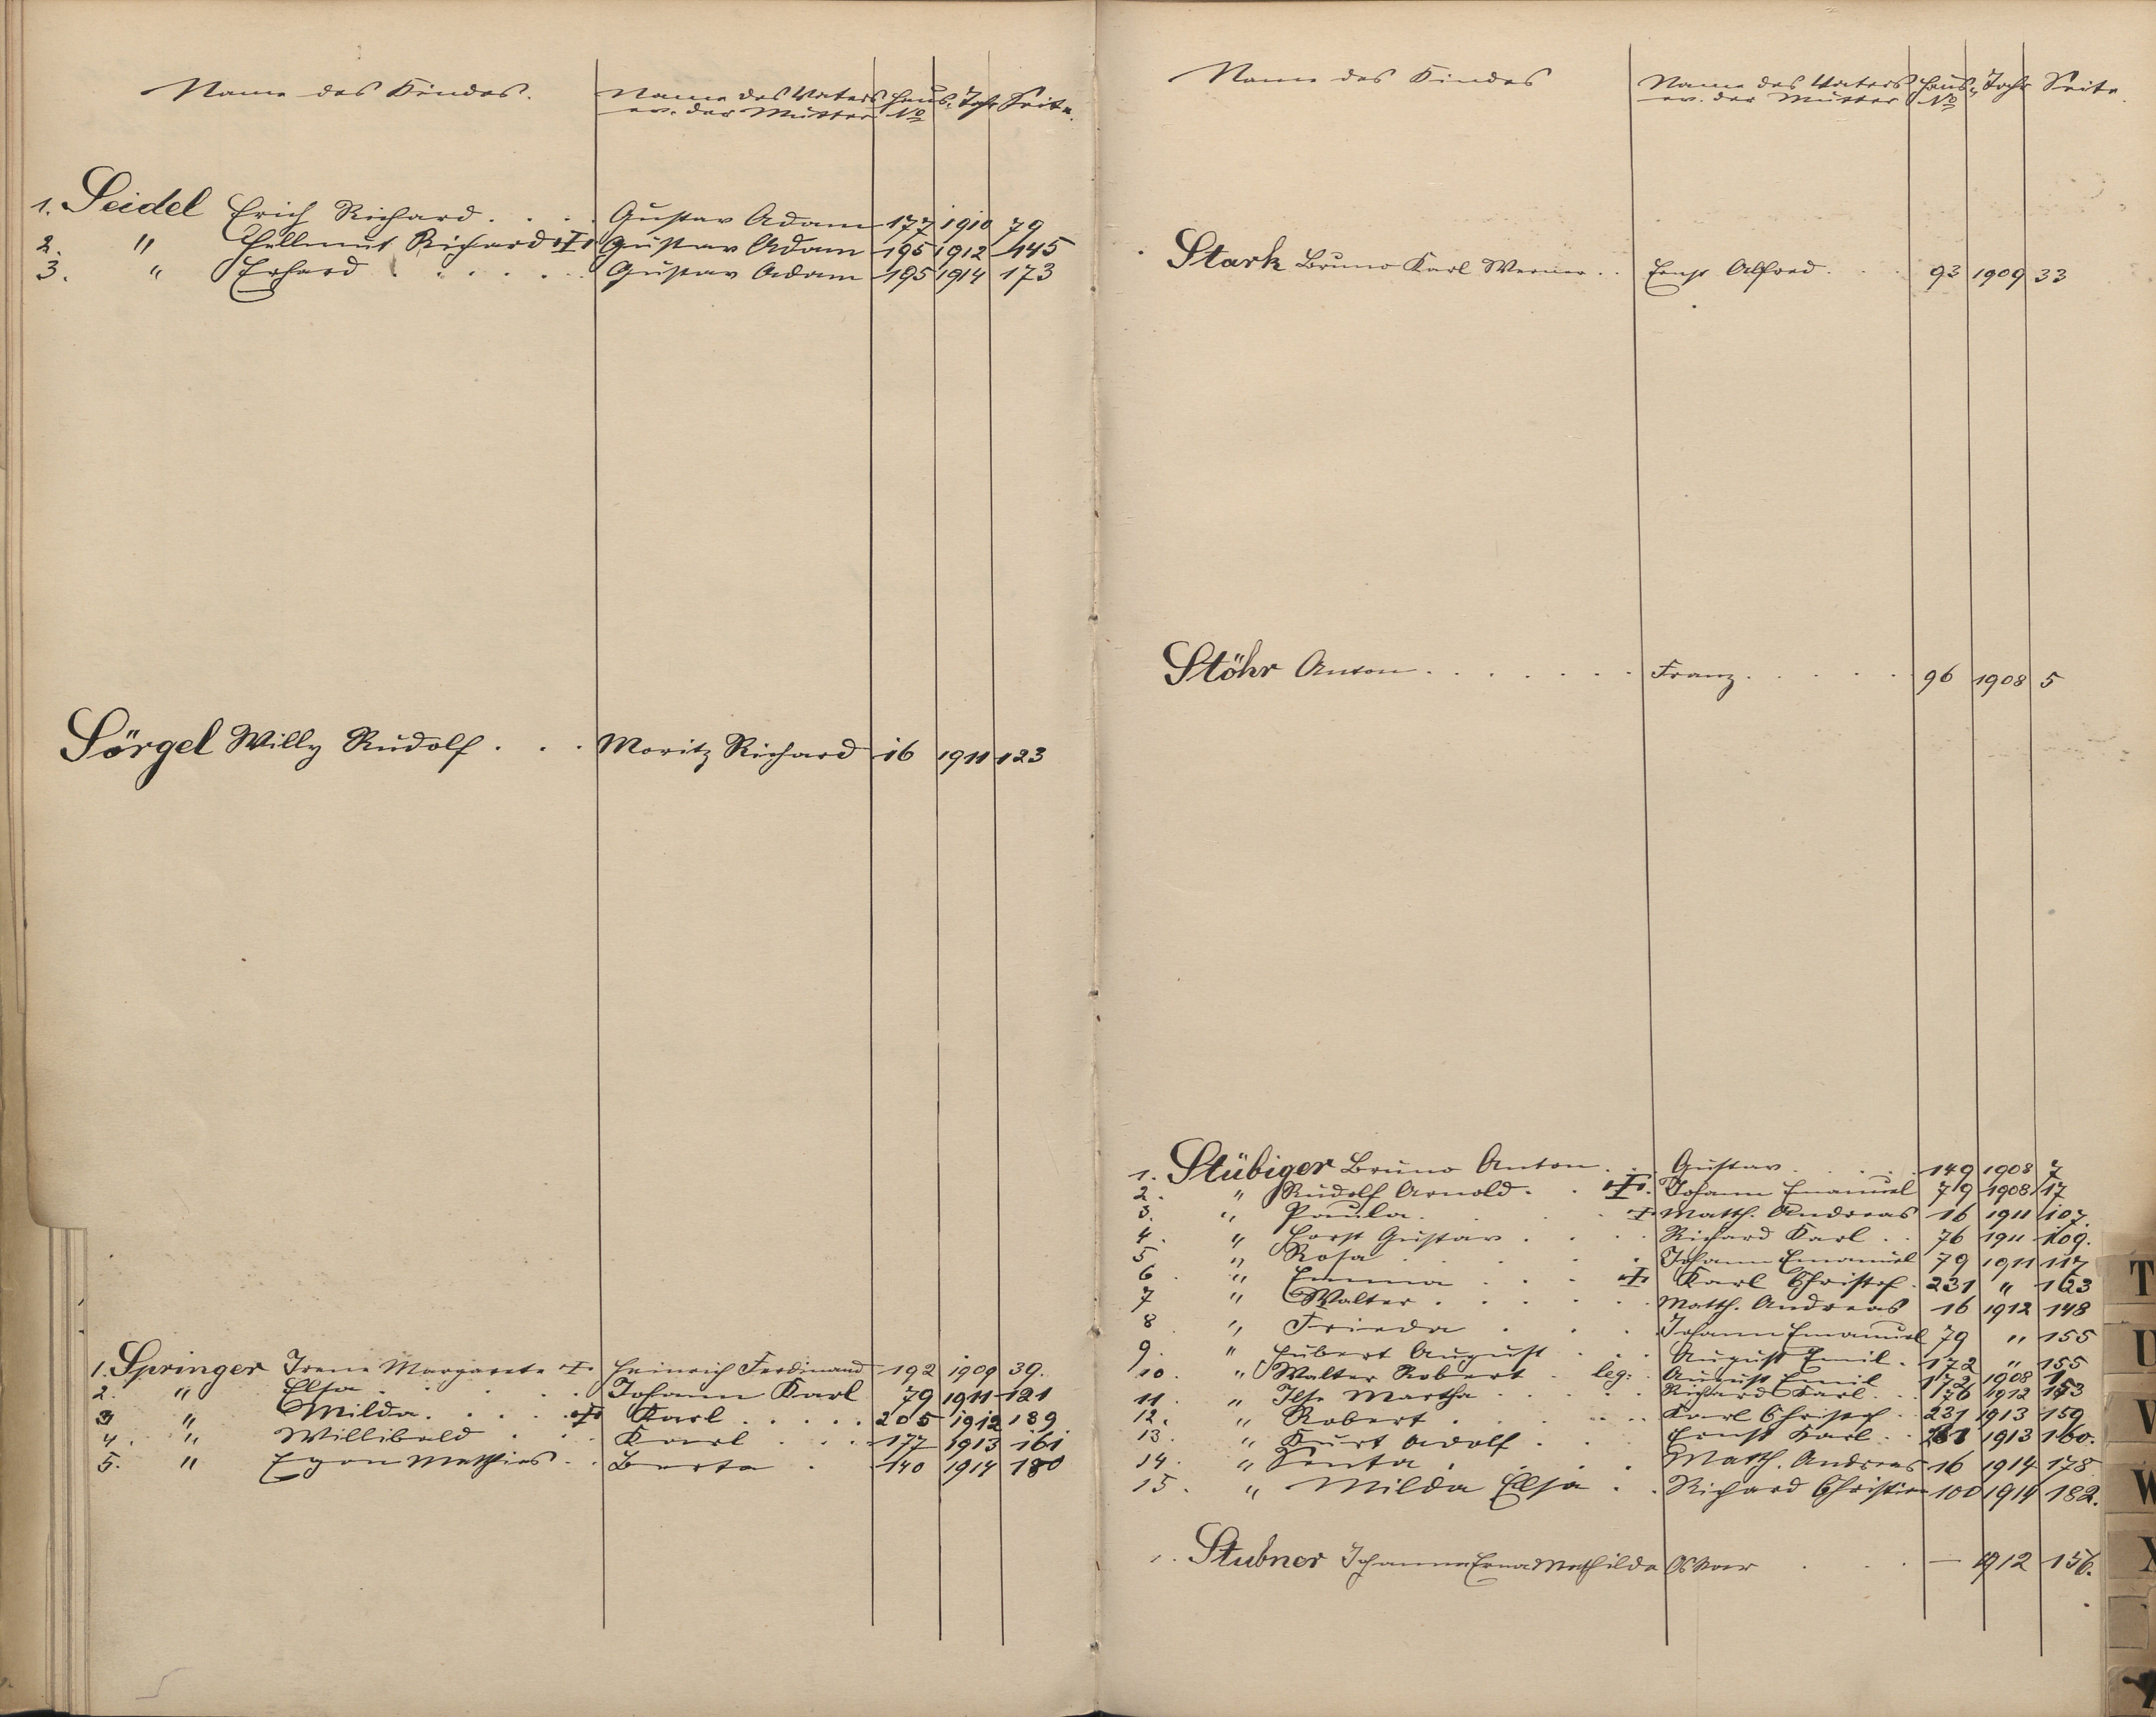 Name des Kindes. Name des Vaters Haus- Jahr Seite.
ev. der Mutter No
1. Seidel Erich Richard . . . . Gustav Adam 177 1910 79
2. " Hellmut Richard ✝ Gustav Adam 195 1912 145
3. " Erhard . . . . . . Gustav Adam 195 1914 173
Sörgel Willy Rudolf . . . Moritz Richard 16 1911 123
1. Springer Irene Margarete ✝ Heinrich Ferdinand 192 1909 39.
2. " Elsa . . . . . Johann Karl 79 1911 121
3 " Milda . . . . ✝ Karl . . . . . 205 1912 189
4. " Willibald . . . Karl . . . 177 1913 161
5. " Egon Mathias . . Berta . 140 1914 180
Name des Kindes Name des Vaters Haus- Jahr Seite
ev. der Mutter No
Stark Bruno Karl Werner . . Ernst Alfred . . . 93 1909 33
Stöhr Anton . . . . . . . Franz . . . . . 96 1908 5
1. Stübiger Bruno Anton . . Gustav . . . . 149 1908 7
2. " Rudolf Arnold . . ✝. Johann Emanuel 79 1908 17
3. " Paula . . . ✝ Matth. Andreas 16 1911 107.
4. " Horst Gustav . . . . Richard Karl . . 76 1911 109.
5 " Rosa . . . . . Johann Emanuel 79 1911 117
6 " Emma . . . ✝ Karl Christof . 231 " 123
7 " Walter . . . . . . Matth. Andreas 16 1912 148
8 " Frieda . . . Johann Emanuel 79 " 155
9. " Hubert August . . . August Emil . 172 " 155
10. " Walter Robert . leg: August Emil 172 1908 1
11. " Ilse Martha . . . . . Richard Karl . . 76 1912 153
12. " Robert . . . . . Karl Christof . 231 1913 159
13. " Kurt Adolf . . . Ernst Karl . . 1913 160.
14. " Senta . . . . . Matth. Andreas 16 1914 178
15. " Milda Elsa . . Richard Christian 100 1914 182.
1. Stubner Johanna Erna Mathilde Oskar . . . — 1912 156.
T
U
V
W
X